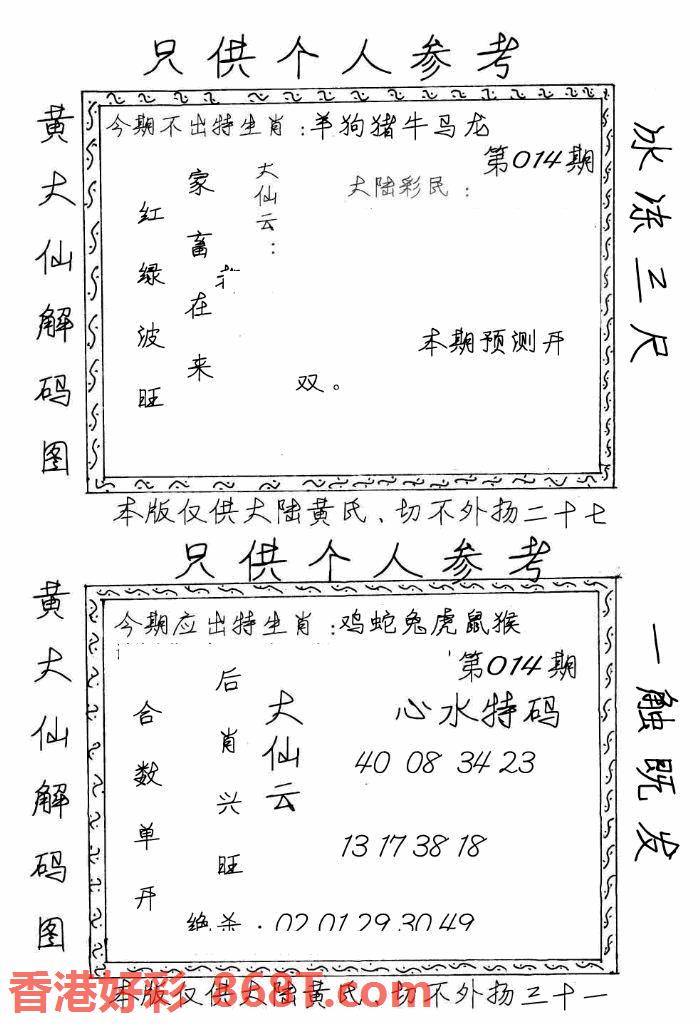 只供个人参考
黄大仙解码图
今期不出特生肖：羊狗猪牛马龙
第014期
大仙云：
家畜在来
红绿波旺
大陆彩民：
本期预测开
双。
冰冻三尺
本版仅供大陆黄氏、切不外扬二十七
只供个人参考
黄大仙解码图
今期应出特生肖：鸡蛇兔虎鼠猴
第014期
大仙云
后肖兴旺
合数单开
心水特码
40 08 34 23
13 17 38 18
绝杀：02 01 29 30 49
一触既发
本版仅供大陆黄氏、切不外扬三十一
香港好彩 868T.com